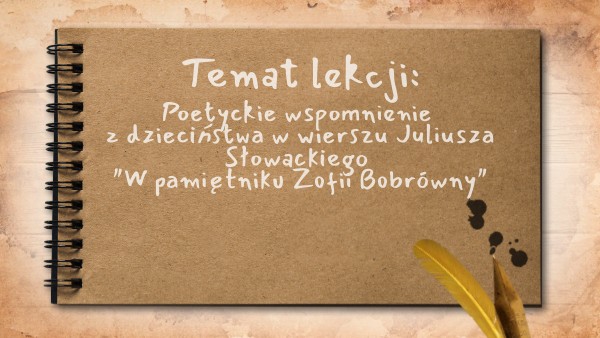 Temat lekcji:
Poetyckie wspomnienie
z dzieciństwa w wierszu Juliusza
Słowackiego
"W pamiętniku Zofii Bobrówny"